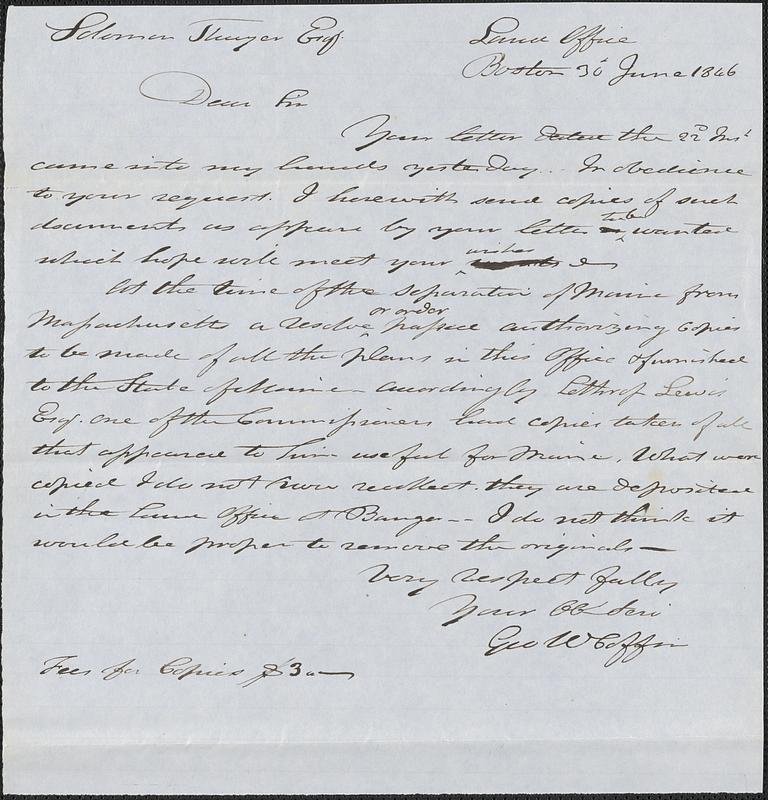 Solomon Thayer Esq.
Land Office
Boston 30 June 1846
Dear Sir
Your letter dated the 22d Inst
came into my hands yesterday. In obedience
to your request. I herewith send copies of such
documents as appear by your letter to be wanted
which hope will meet your wishes
At the time of the separation of Maine from
Massachusetts a resolve or order passed authorizing copies
to be made of all the plans in this Office & furnished
to the State of Maine - accordingly Lothrop Lewis
Esq. one of the Commissioners had copies taken of all
that appeared to him useful for Maine. What were
copied I do not now recollect. they are deposited
in the Land Office at Bangor -- I do not think it
would be proper to remove the originals -
Very respectfully
Your Ob Serv
Geo W Coffin
Fees for Copies $3 —